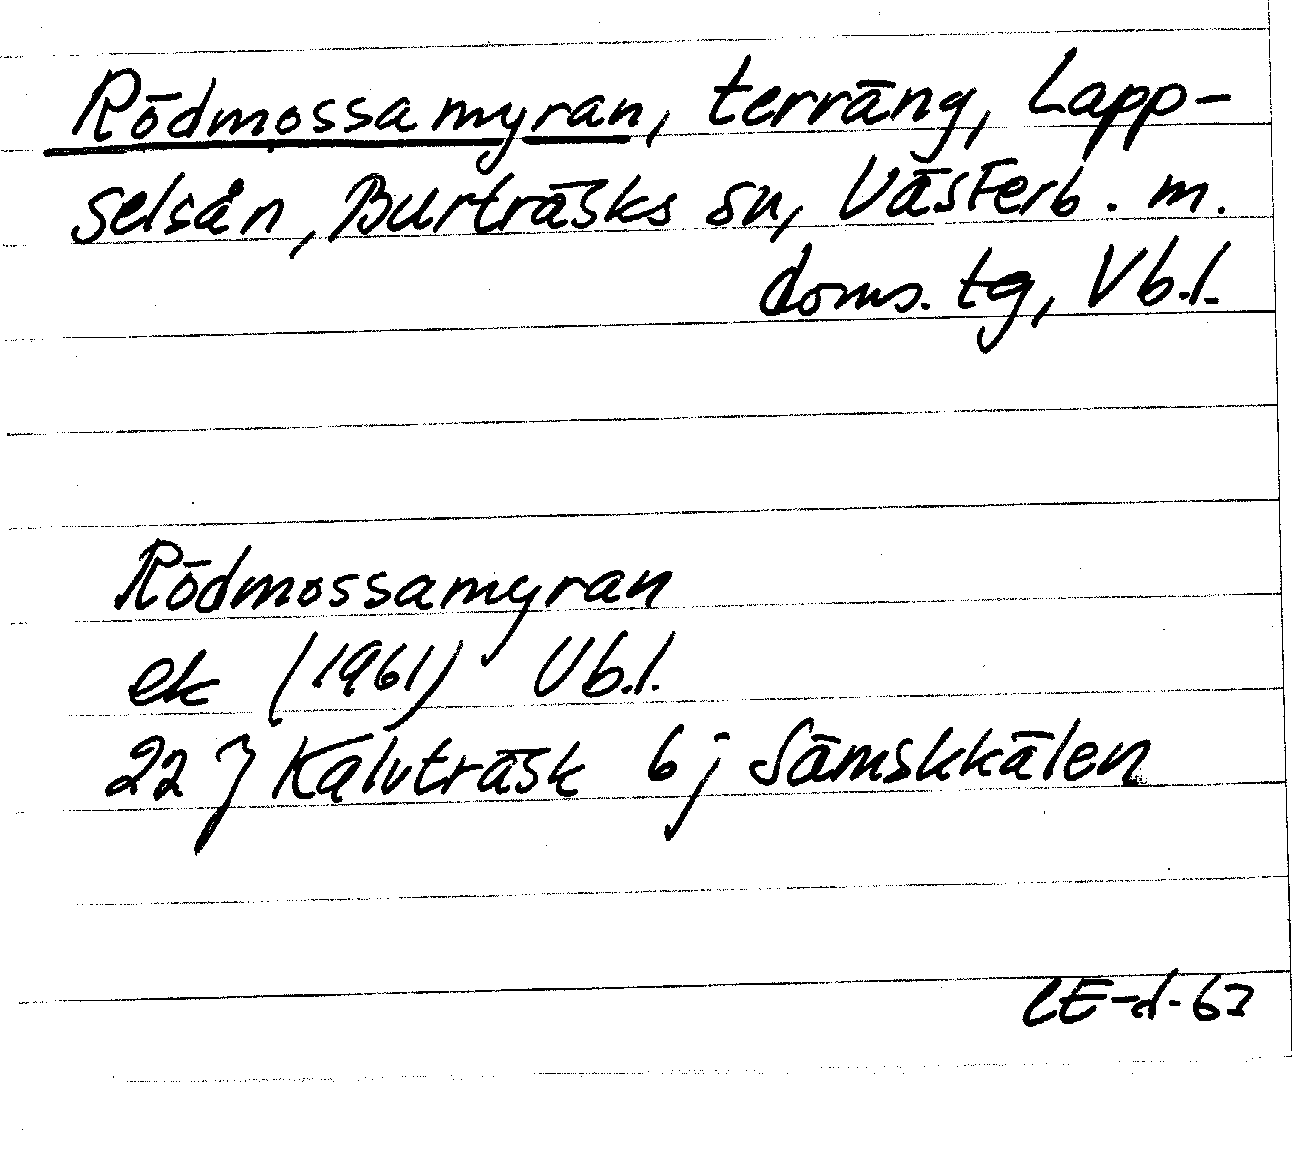 Rödmossamyran, terräng, Lapp-
selsån, Burträsks sn, Västerb. m.
doms. tg, Vb.l.
Rödmossamyran
ek (1961) Vb.l.
22 J Kalvträsk 6 j Sämskkälen